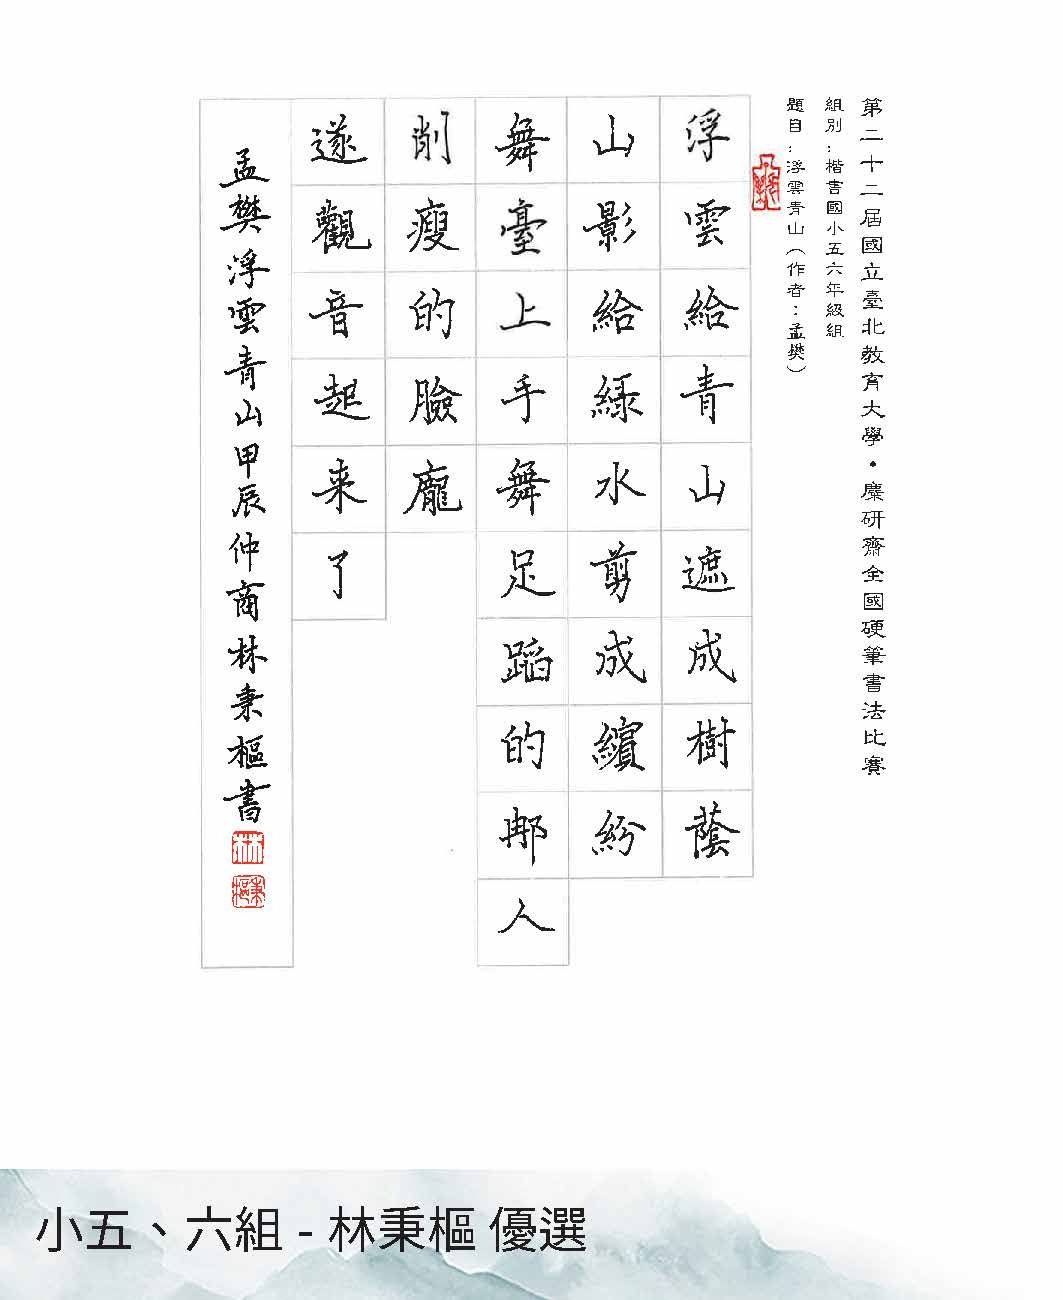 第二十二屆國立臺北教育大學・麋研齋全國硬筆書法比賽
組別：楷書國小五六年級組
題目：浮雲青山（作者：孟樊）
浮雲給青山遮成樹蔭
山影給綠水剪成繽紛
舞臺上手舞足蹈的那人
削瘦的臉龐
遂觀音起來了
孟樊浮雲青山甲辰仲商林秉樞書
林
秉樞
小五、六組 - 林秉樞 優選